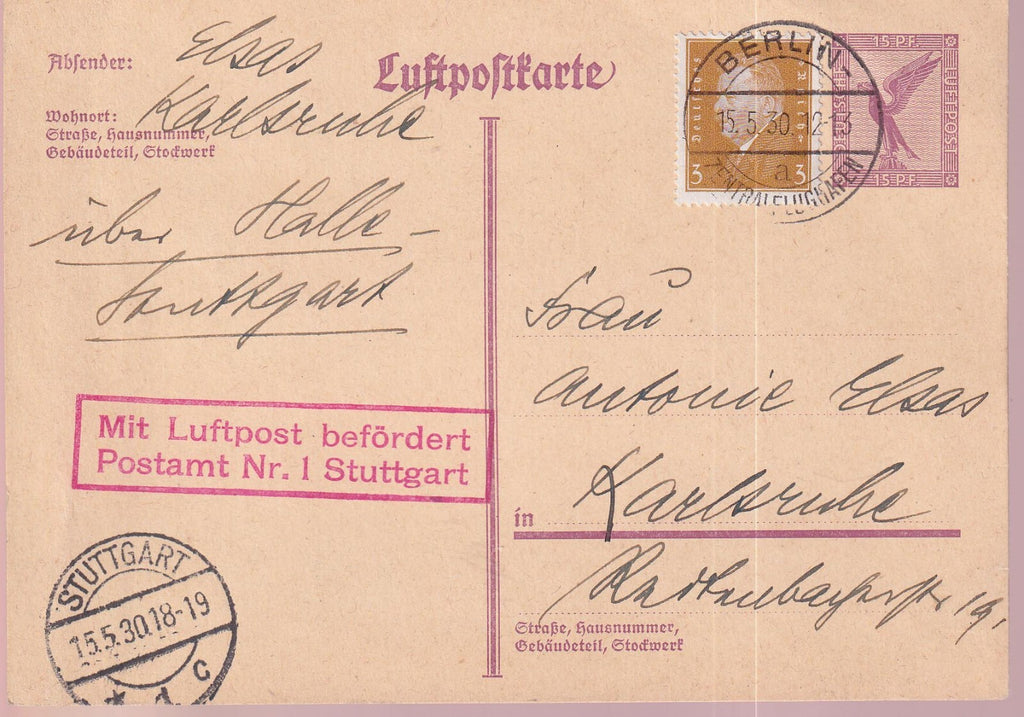 Absender:
Elsas
Karlsruhe
Wohnort:
Straße, Hausnummer,
Gebäudeteil, Stockwerk
über Halle-
Stuttgart
Luftpostkarte
Deutsches Reich
3 3
15 PF.
LUFTPOST
15 PF.
BERLIN-
15.5.30.12-13
a
ZENTRALFLUGHAFEN
Frau
Antonie Elsas
in Karlsruhe
Redtenbacherstr 19.
Straße, Hausnummer,
Gebäudeteil, Stockwerk
Mit Luftpost befördert
Postamt Nr. 1 Stuttgart
STUTTGART
15.5.30.18-19
* 1 c